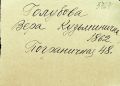 Голубова
Вера Кузьминична
1862
Пограничная 48.